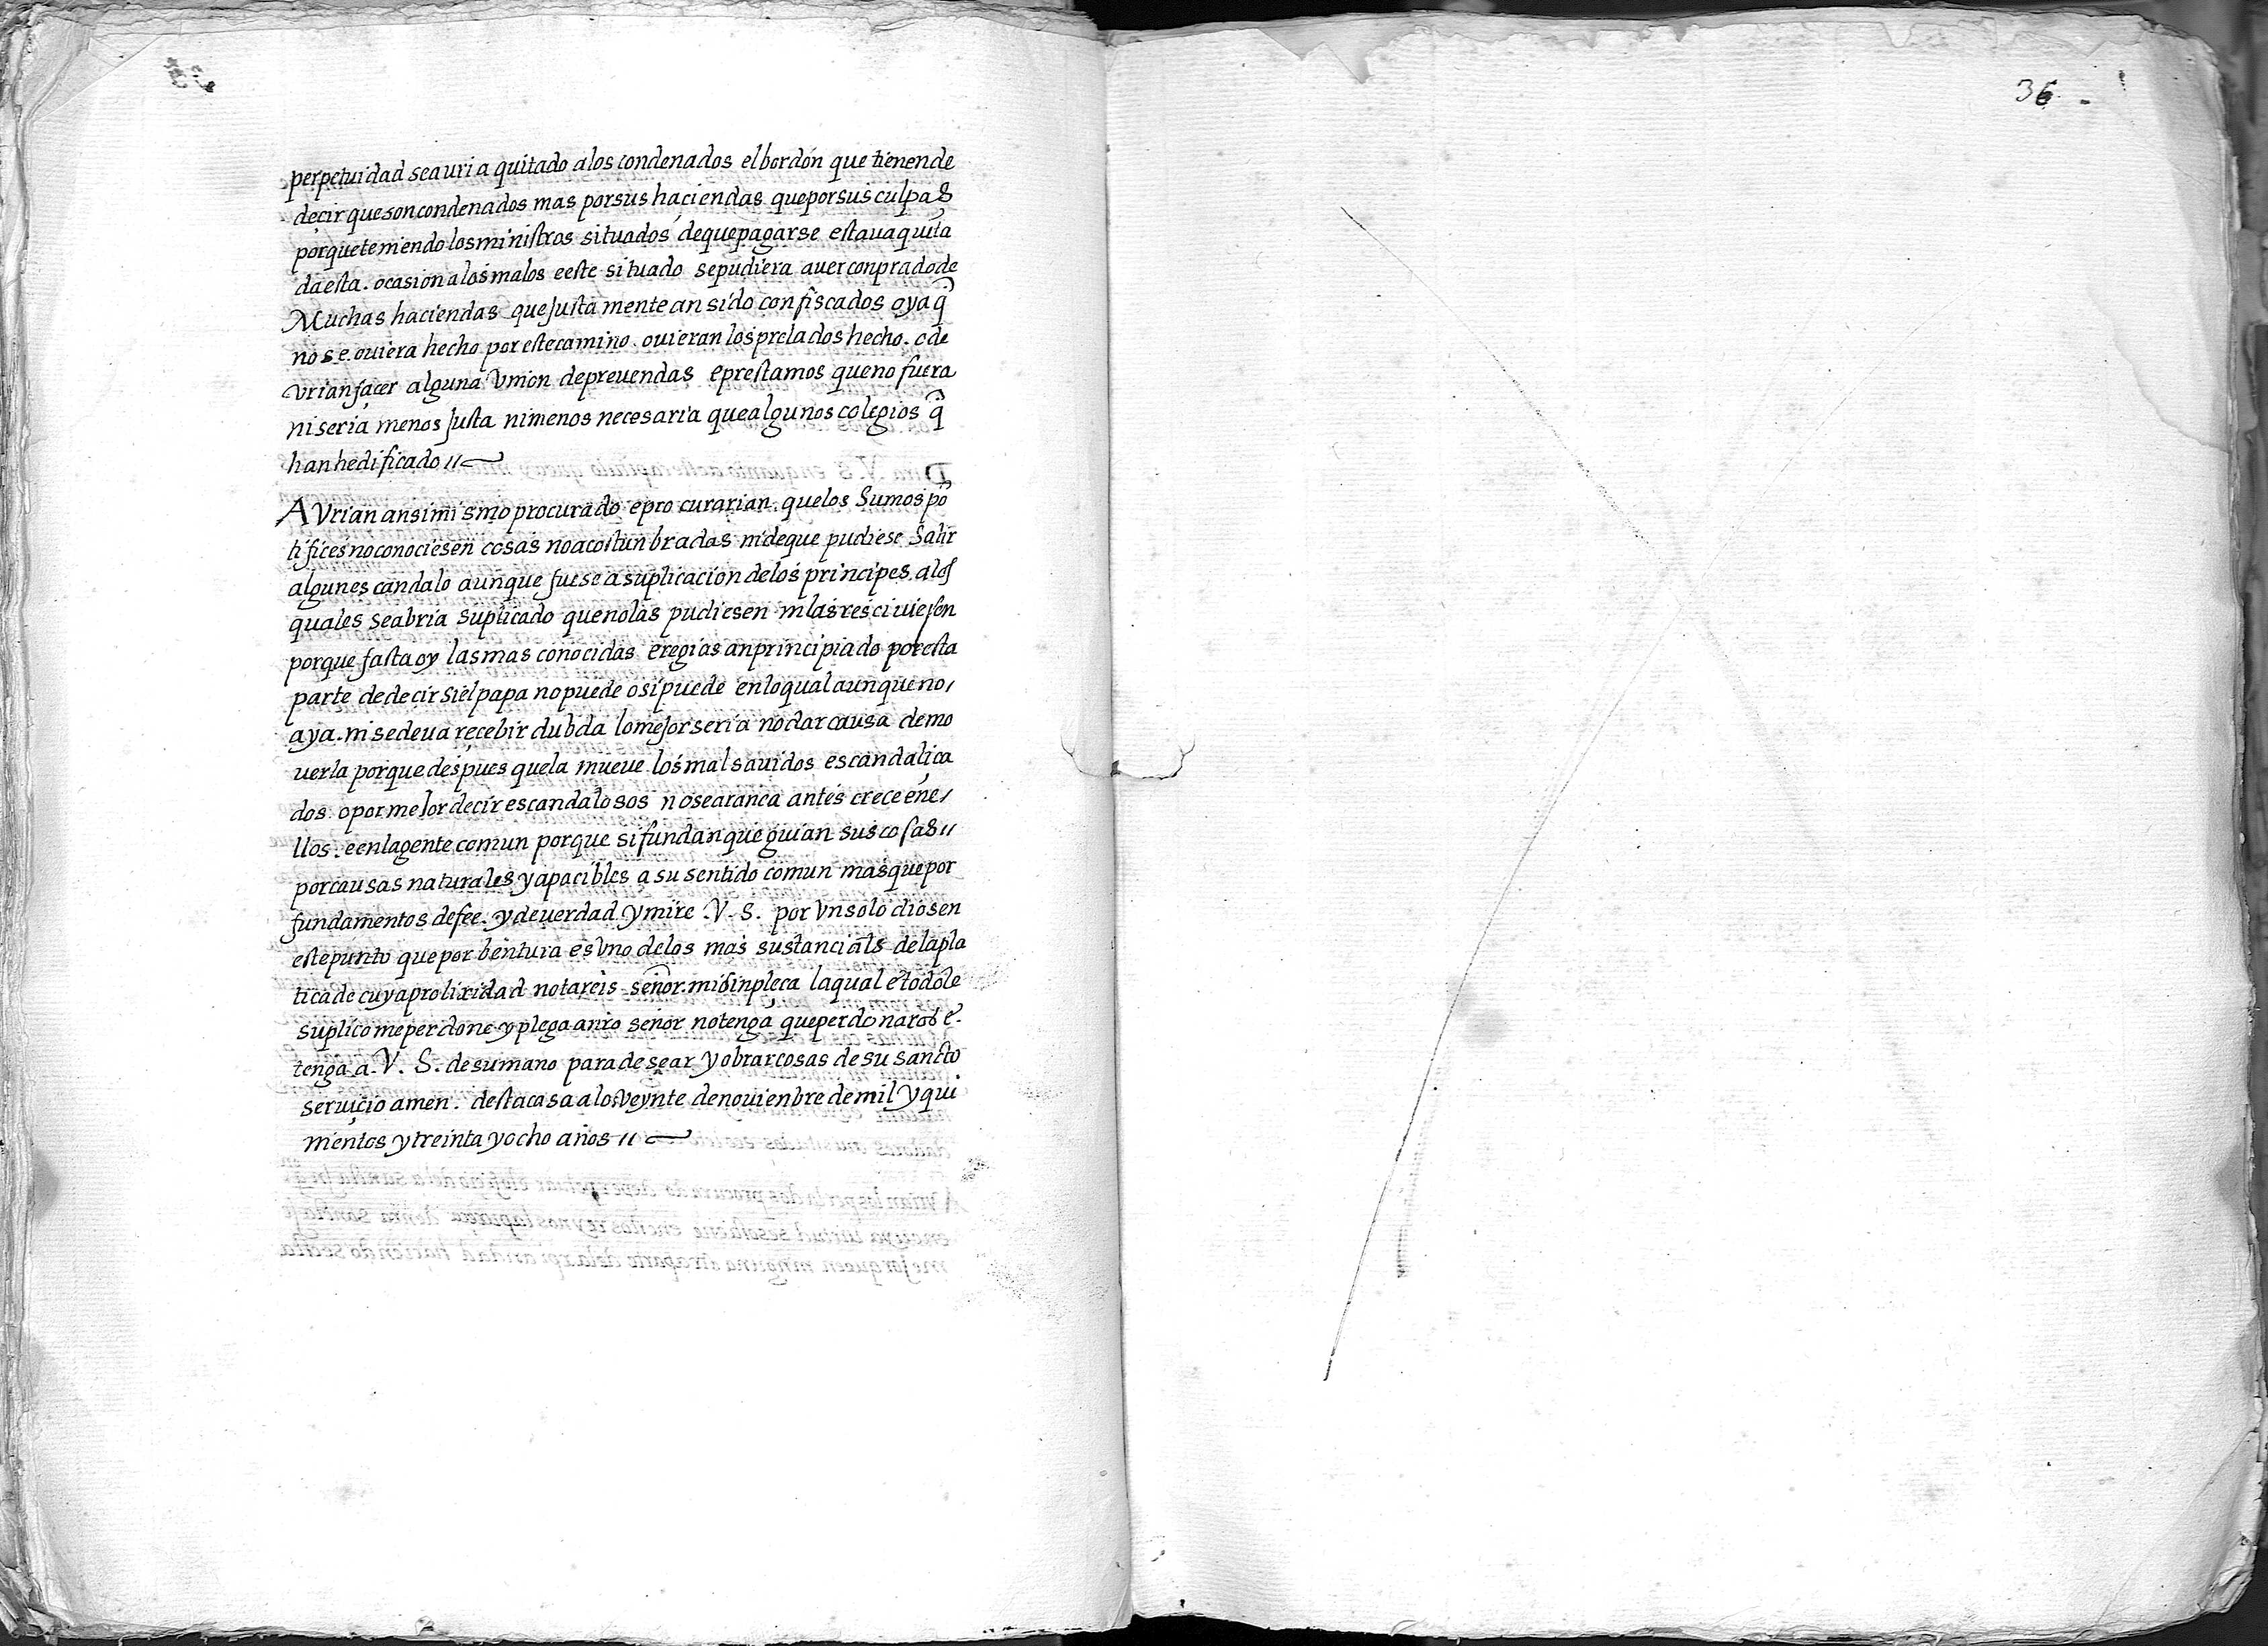 perpetuidad sea uria quitado a los condenados el bordón que tienen de
decir que son condenados mas por sus haciendas que por sus culpas
porque teniendo los ministros situados de que pagarse estaua quita
da esta. ocasion a los malos e este situado se pudiera auer conprado de
Muchas haciendas que Justa mente an sido confiscados o ya q̃
no se. ouiera hecho por este camino. ouieran los prelados hecho. o de
vrian facer alguna Vnion de preuendas e prestamos que no fuera
ni seria menos Justa ni menos necesaria que algunos colegios q̃
han hedificado //
AVrian ansimismo procurado e procurarian. que los Sumos põ
tifices no conociesen cosas no acostunbradas ni de que pudiese Salir
algun escandalo aunque fuese a suplicacion de los principes. a los
quales se abria suplicado que no las pudiesen ni las resciuiesen
porque fasta oy las mas conocidas eregias an principiado por esta
parte de decir si el papa no puede o si puede en lo qual aunque no,
aya. ni se deua reçebir dubda lo meJor seria no dar causa de mo
uerla porque despues que la mueue los mal sauidos escandaliça
dos. o por meJor decir escandalosos no se aranca antes crece en e,
llos. e en la gente comun porque si fundan que guian sus cosas //
por causas naturales y apacibles a su sentido comun mas que por
fundamentos de fee. y de uerdad y mire .V. S. por Vn solo dios en
este punto que por bentura es Vno de los mas sustancials de la pla
tica de cuya prolixidad notareis señor mi sinpleça la qual e todo le
suplico me perdone y plega a nr̃o señor no tenga que perdonaros e.
tenga a. V. S. de su mano para desear y obrar cosas de su sancto
seruiçio amen. desta casa a los Veynte de nouienbre de mil y qui
nientos y treinta y ocho años //
36